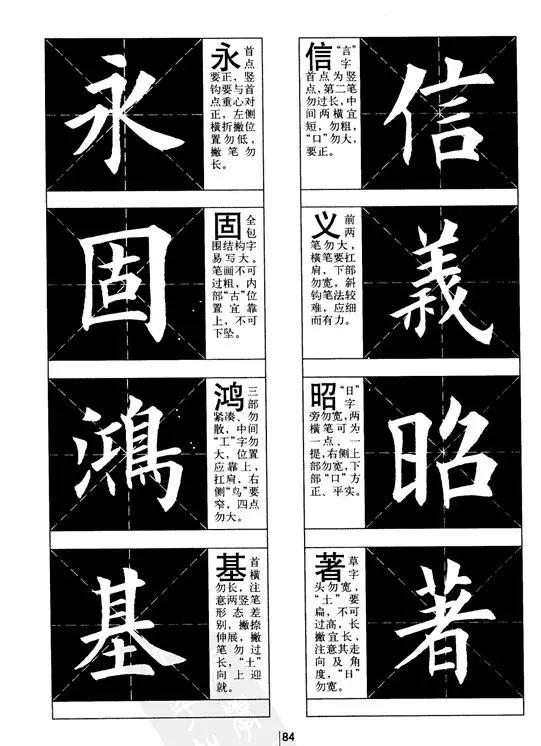 永
永 首点
要正，竖
钩要与首
点重心对
正，左侧
横折撇位
置勿低，
撇笔勿
长。
固
固 全包
围结构字
易写大。
笔画不可
过粗，内
部“古”位
置宜靠
上，不可
下坠。
鴻
鸿 三部
紧凑、勿
散，中间
“工”字勿
大，位置
应靠上，
扛肩，右
侧“鸟”要
窄，四点
勿大。
基
基 首横
勿长，注
意两竖笔
形态差
别，撇捺
伸展，撇
笔勿过
长，“土”
向上迎
就。
信 “言”字
首点为竖
点，第二笔
勿过长，中
间两横宜
短，勿粗，
“口”勿大，
要正。
信
义 前两
笔勿大，
横笔要扛
肩，下部
勿宽，斜
钩笔法较
难，应细
而有力。
義
昭 “日”字
旁勿宽，两
横笔可为
一点、一
提，右侧上
部勿宽，下
部“口”方
正、平实。
昭
著 草字
头勿宽，
“土”要
扁，不可
过高，长
撇宜长，
注意其走
向及角
度，“日”
勿宽。
著
84